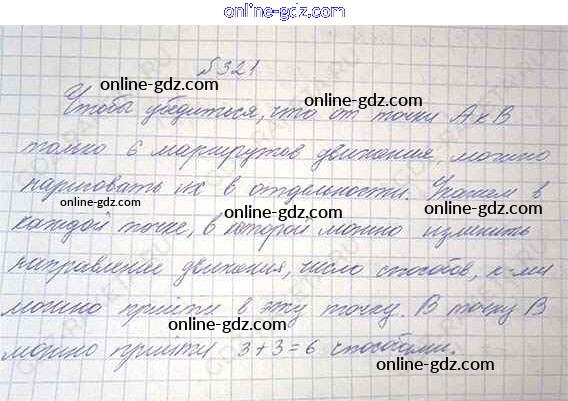 online-gdz.com
№321
online-gdz.com
Чтобы убедиться, что от точки А к В
online-gdz.com
только 6 маршрутов движения, можно
online-gdz.com
нарисовать их в отдельности. Укажем в
online-gdz.com
online-gdz.com
каждой точке, в которой можно изменить
online-gdz.com
направление движения, число способов, к-ми
online-gdz.com
можно прийти в эту точку. В точку В
online-gdz.com
можно прийти 3+3=6 способами.
online-gdz.com
online-gdz.com